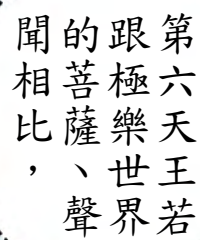 第六天王若
跟極樂世界
的菩薩、聲
聞相比，